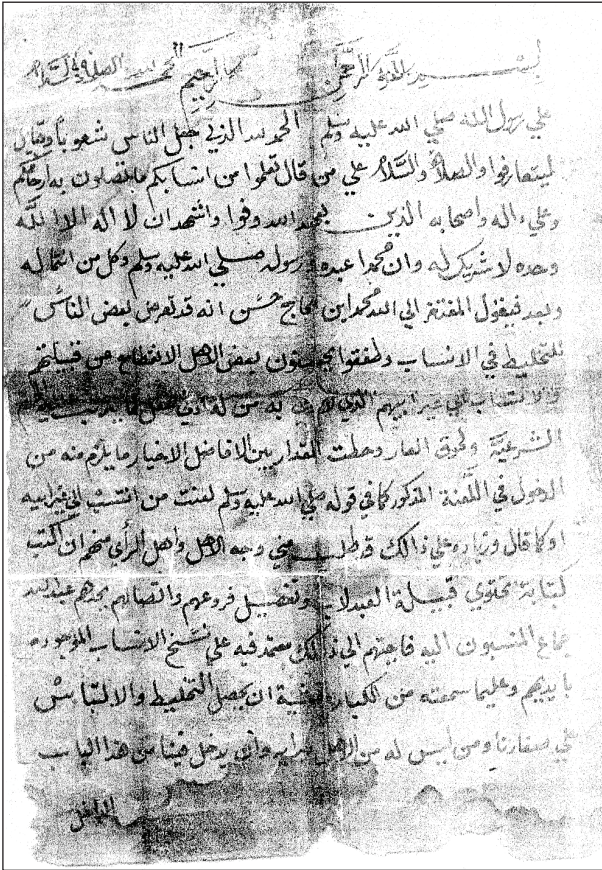 بسم الله الرحمن الرحيم الحمد لله والصلاة والسلام
علي رسول الله صلي الله عليه وسلم الحمد لله الذي جعل الناس شعوبا وقبائل
ليتعارفوا والصلاة والسلام علي من قال تعلموا من انسابكم ما تصلون به ارحامكم
وعلي اله واصحابه الذين بعهد الله وفوا واشهد ان لا اله الا الله
وحده لا شريك له وان محمدا عبده ورسوله صلي الله عليه وسلم وكل من انتما له
وبعد فيقول المفتقر الي الله محمد ابن حاج حسن انه قد تعرض بعض الناس
للتخليط في الانساب وطفقوا بعض الاهل الانقطاع من قبيلتهم
والانتساب الي غير ابيهم الذي به من له
الشرعية ولحوق العار وحطت المقدار بين الافاضل الاخيار ما يلزم منه من
الدخول في اللعنة المذكور كما في قوله صلي الله عليه وسلم لعنت من انتسب الي غير ابيه
او كما قال وزياده علي ذالك قد طلب مني وجه الاهل واهل الرأي منهم ان اكتب
كتابة تحتوي قبيلة العبدلاب وتفصيل فروعهم واتصالهم بجدهم عبد الله
جماع المنسبون اليه فاجبتهم الي ذالك معتمد فيه علي نسخ الانساب الموجوده
بايديهم وعليما سمعته من الكبار خشية ان يحصل التخليط والالتباس
علي صغارنا ومن ليس له من الاهل دراية وان يدخل فينا من هذا الباب
الداخل